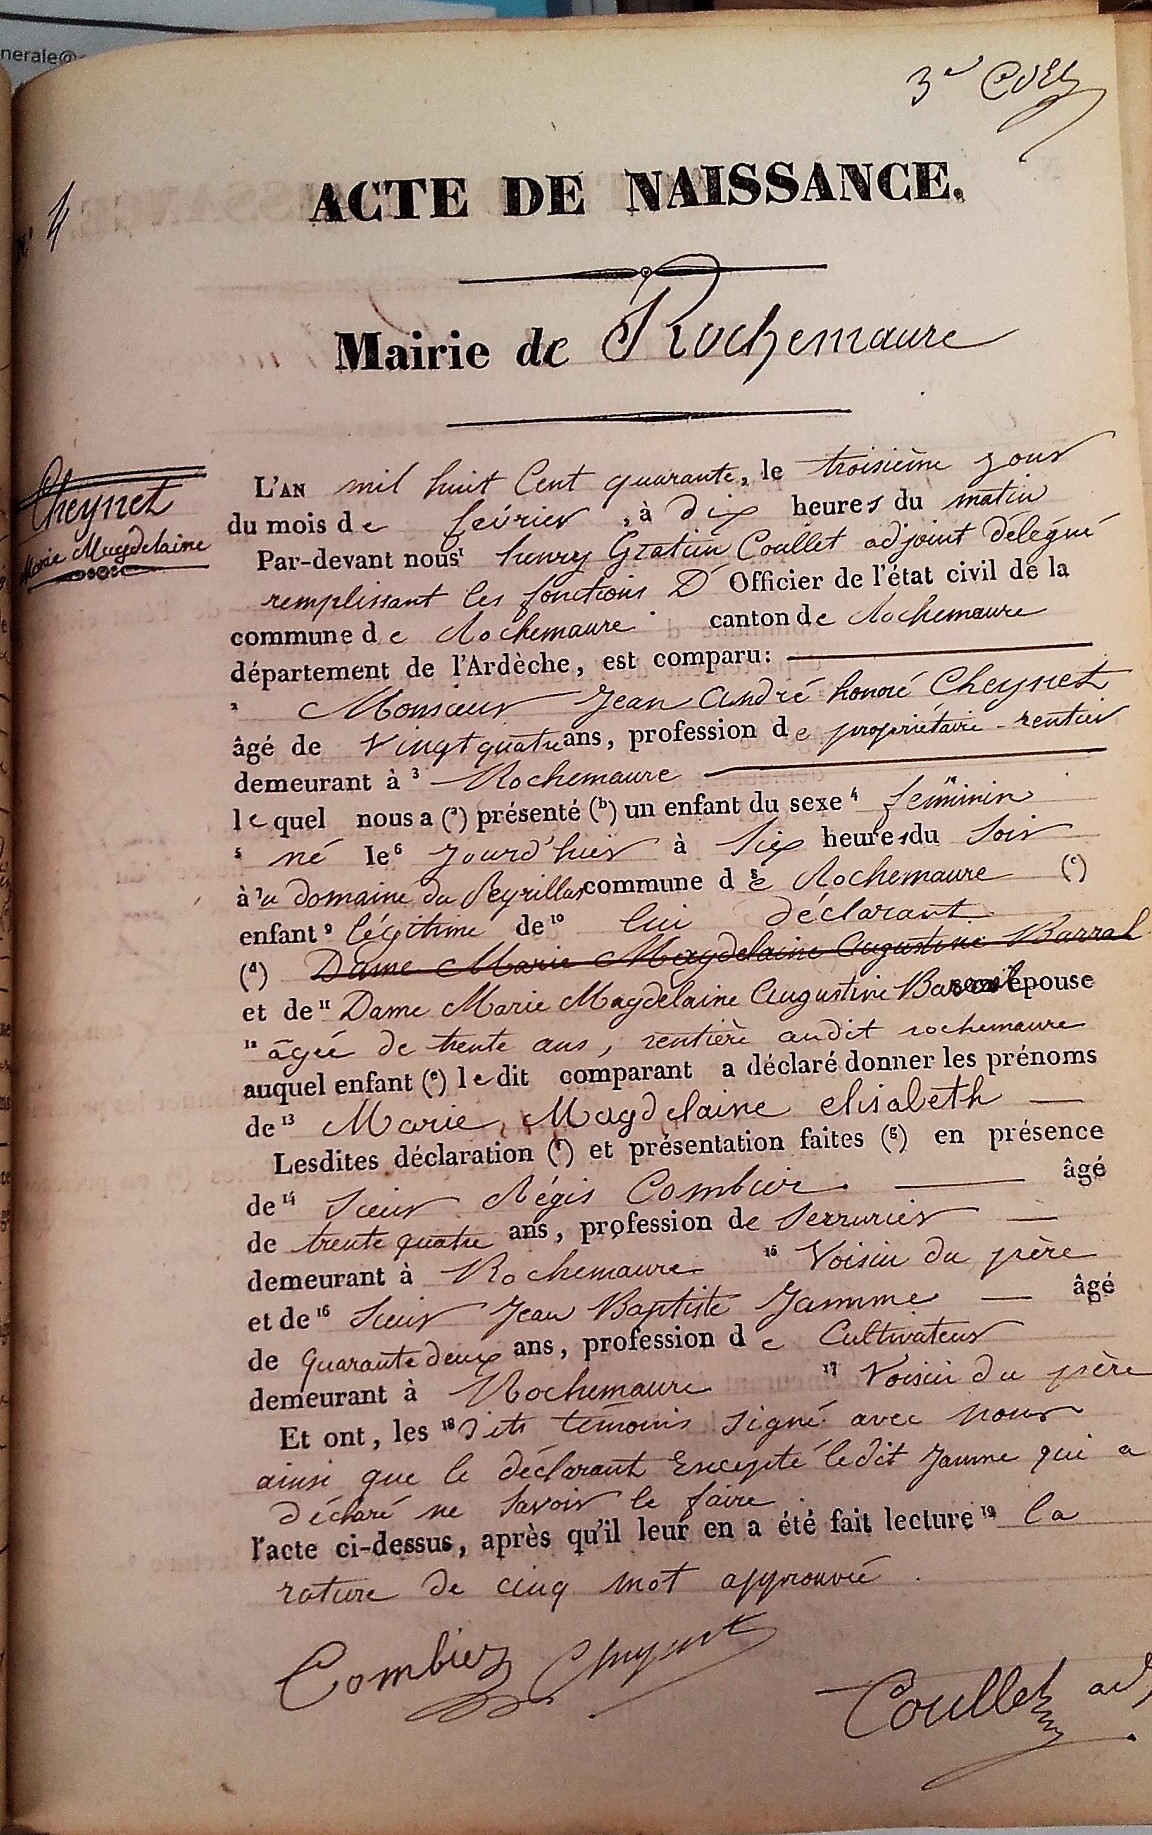 nerale@
3e
N° 4
ACTE DE NAISSANCE.
Mairie de Rochemaure
Cheynet
Marie Magdelaine
L'AN mil huit Cent quarante, le troisième jour
du mois de février, à dix heures du matin
Par-devant nous¹ henry Gratien Coullet adjoint délégué
remplissant les fonctions D' Officier de l'état civil de la
commune de Rochemaure canton de Rochemaure
département de l'Ardèche, est comparu:
² Monsieur Jean André honoré Cheynet
âgé de Vingt quatre ans, profession de propriétaire - rentier
demeurant à ³ Rochemaure
lequel nous a (a) présenté (b) un enfant du sexe ⁴ féminin
⁵ né le⁶ jourd'hier à Six heures du Soir
à ⁷ au domaine du Peyrillas commune d ⁸ e Rochemaure (c)
enfant ⁹ légitime de ¹⁰ lui déclarant.
(d) Dame Marie Magdelaine Augustine Barral
et de ¹¹ Dame Marie Magdelaine Augustine épouse
¹² âgée de trente ans, rentière audit rochemaure
auquel enfant (e) ledit comparant a déclaré donner les prénoms
de ¹³ Marie, Magdelaine elisabeth
Lesdites déclaration (f) et présentation faites (g) en présence
de ¹⁴ Sieur Régis Combier. âgé
de trente quatre ans, profession de Serrurier
demeurant à Rochemaure ¹⁵ Voisin du père
et de ¹⁶ Sieur Jean Baptiste Jamme âgé
de Quarante deux ans, profession de Cultivateur
demeurant à Rochemaure ¹⁷ Voisin du père
Et ont, les ¹⁸ dits témoins signé avec nous
ainsi que le déclarant Excepté ledit Jamme qui a
déclaré ne Savoir le faire.
l'acte ci-dessus, après qu'il leur en a été fait lecture ¹⁹ la
rature de cinq mot approuvée.
Combier Cheynet
Coullet adj